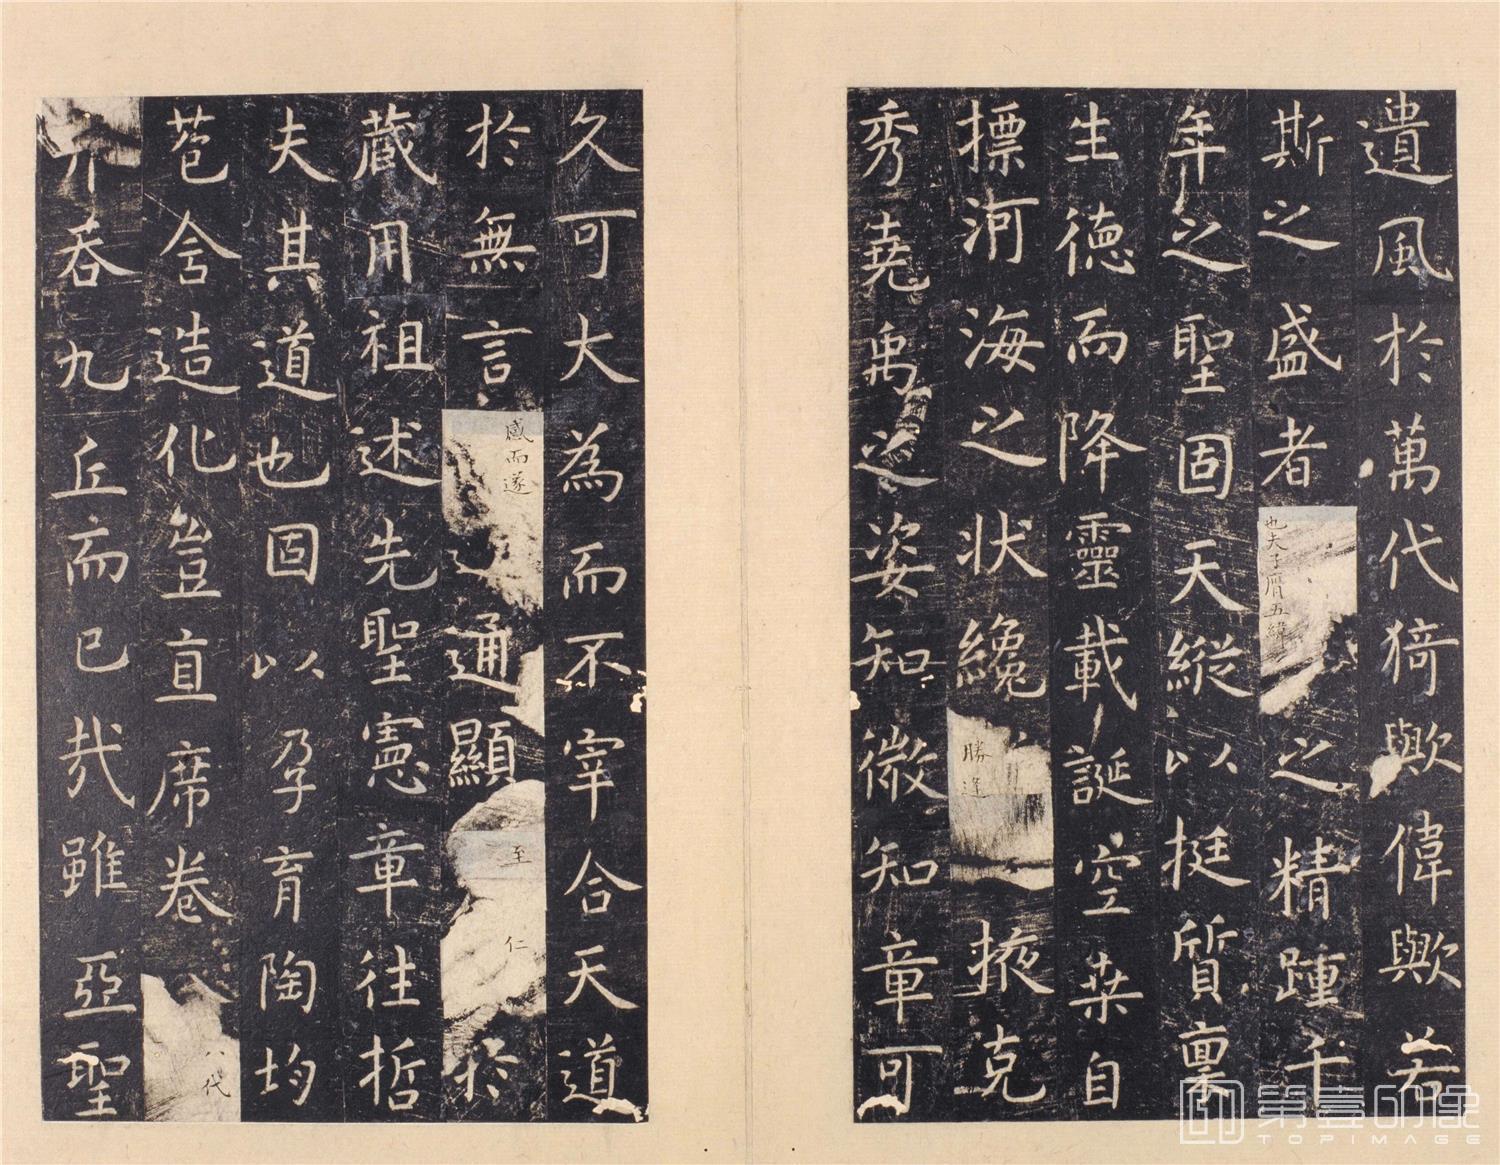 遺風於萬代猗歟偉歟若
斯之盛者也夫子膺五緯之精踵千
年之聖固天縱以挺質稟
生德而降靈載誕空桒自
摽河海之狀纔勝逢掖克
秀堯禹之姿知微知章可
久可大為而不宰合天道
於無言感而遂通顯至仁於
藏用祖述先聖憲章往哲
夫其道也固以孕育陶均
苞含造化豈直席卷八代
吞九丘而已哉雖亞聖
第壹印像
TOPIMAGE